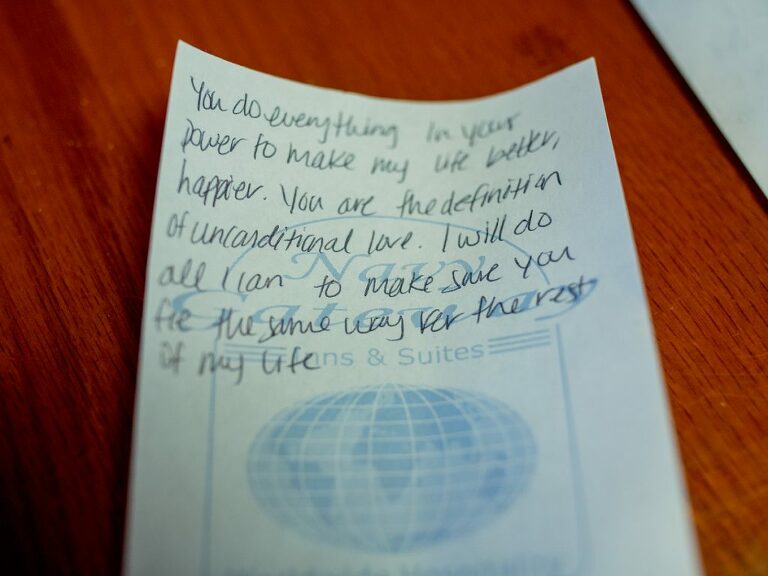 You do everything in your
power to make my life better,
happier. You are the definition
of unconditional love. I will do
all I can to make sure you
the same way for the rest
of my life
Navy
Gateway
Inns & Suites